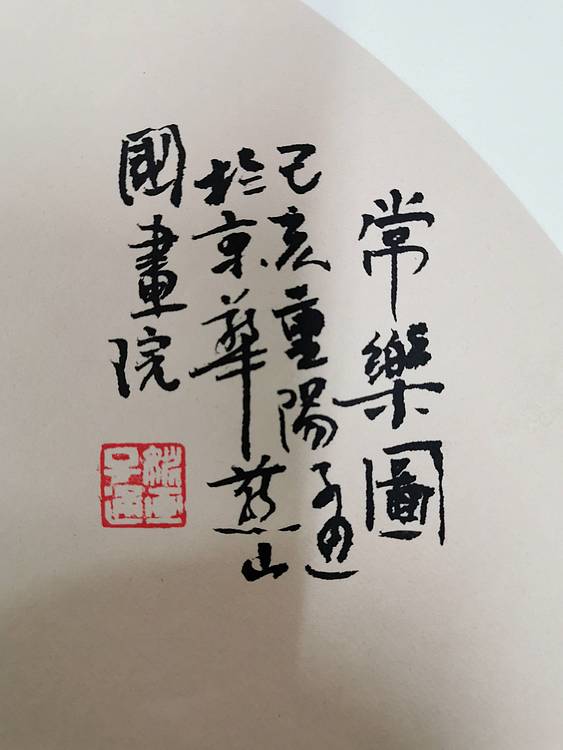 常樂圖
己亥重陽子通
於京華燕山
國畫院